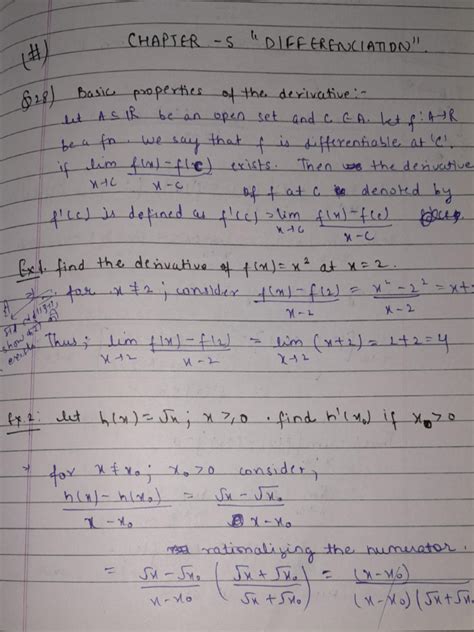 (#) CHAPTER -5 "DIFFERENCIATION".
§28) Basic properties of the derivative:-
let A⊆ℝ be an open set and c ∈ A. let f: A→R
be a fn. We say that f is differentiable at 'c'.
if lim x→c f(x)-f(c) / x-c exists. Then the derivative
of f at c denoted by
f'(c) is defined as f'(c) = lim x→c f(x)-f(c) / x-c
Ex1. find the derivative of f(x)= x² at x=2.
for x≠2 ; consider f(x)-f(2) / x-2 = x²-2² / x-2 = x+
show
Thus; lim x→2 f(x)-f(2) / x-2 = lim x→2 (x+2) = 2+2=4
Ex.2: let h(x)=√x ; x≥0 . find h'(x₀) if x₀>0
→ for x≠x₀; x₀>0 consider;
h(x)-h(x₀) / x-x₀ = √x-√x₀ / x-x₀
rationalizing the numerator.
= √x-√x₀ / x-x₀ (√x+√x₀ / √x+√x₀) = (x-x₀) / (x-x₀)(√x+√x₀